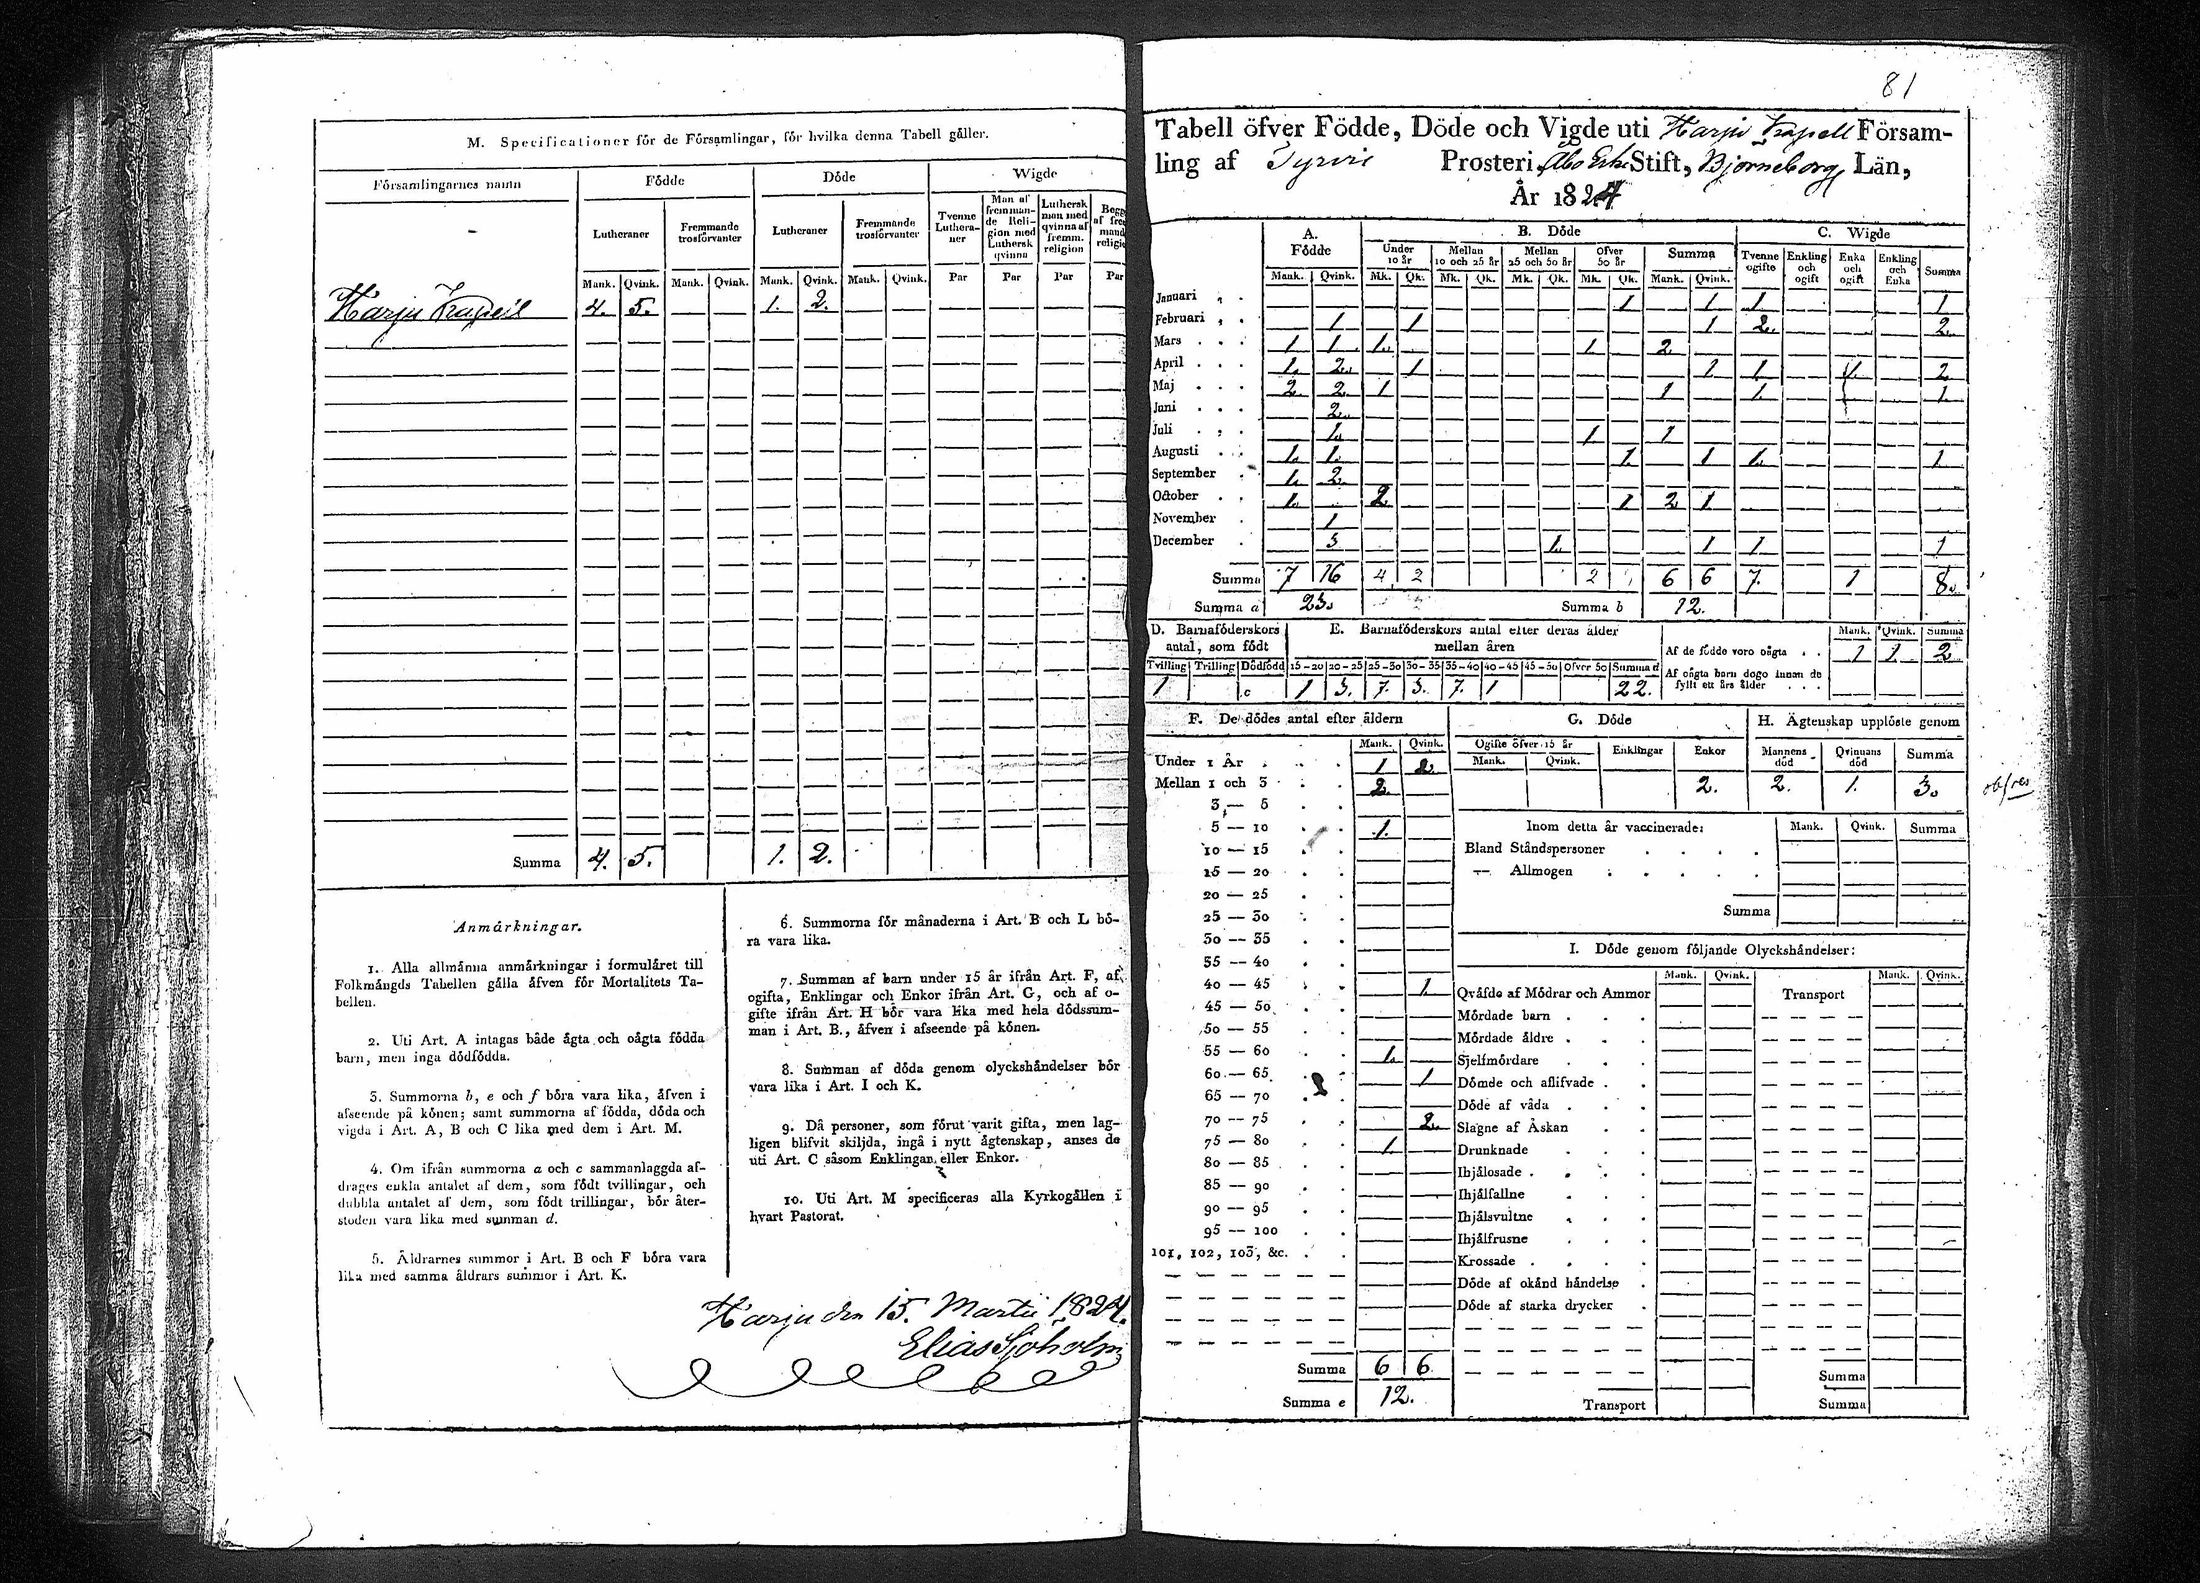 M. Specificationer för de Församlingar, för hvilka denna Tabell gäller.
Församlingarnes namn
Födde
Döde
Wigde
Lutheraner
Fremmande trosförvanter
Lutheraner
Fremmande trosförvanter
Tvenne Lutheraner
Man af fremmande Religion med Luthersk qvinna
Luthersk man med qvinna af fremm. religion
Mank. Qvink. Mank. Qvink. Mank. Qvink. Mank. Qvink. Par Par Par Par
Harju Kapell 4. 5. 1. 2.
Summa 4. 5. 1. 2.
Anmärkningar.
1. Alla allmänna anmärkningar i formuläret till
Folkmängds Tabellen gälla äfven för Mortalitets Ta-
bellen.
2. Uti Art. A intagas både ägta och oägta födda
barn, men inga dödfödda.
3. Summorna b, e och f böra vara lika, äfven i
afseende på könen; samt summorna af födda, döda och
vigda i Art. A, B och C lika med dem i Art. M.
4. Om ifrån summorna a och c sammanlaggda af-
drages enkla antalet af dem, som födt tvillingar, och
dubbla antalet af dem, som födt trillingar, bör åter-
stoden vara lika med summan d.
5. Åldrarnes summor i Art. B och F böra vara
lika med samma åldrars summor i Art. K.
6. Summorna för månaderna i Art. B och L bö-
ra vara lika.
7. Summan af barn under 15 år ifrån Art. F, af
ogifta, Enklingar och Enkor ifrån Art. G, och af o-
gifte ifrån Art. H bör vara lika med hela dödssum-
man i Art. B., äfven i afseende på könen.
8. Summan af döda genom olyckshändelser bör
vara lika i Art. I och K.
9. Då personer, som förut varit gifta, men lag-
ligen blifvit skiljda, ingå i nytt ägtenskap, anses de
uti Art. C såsom Enklingar eller Enkor.
10. Uti Art. M specificeras alla Kyrkogällen i
hvart Pastorat.
Harju den 15. Martii 1824.
Elias Sjöholm
81
Tabell öfver Födde, Döde och Vigde uti Harju Kapell Försam-
ling af Tyrvis Prosteri, Åbo Erke Stift, Björneborgs Län,
År 1824
A. Födde
B. Döde
C. Wigde
Under 10 år
Mellan 10 och 25 år
Mellan 25 och 50 år
Öfver 50 år
Summa
Tvenne ogifte
Enkling och ogift
Enka och ogift
Enkling och Enka
Summa
Mank. Qvink. Mk. Qk. Mk. Qk. Mk. Qk. Mk. Qk. Mank. Qvink.
Januari 1 1 1 1
Februari 1 1 1 2. 2.
Mars 1 1 1. 1. 2
April 1. 2. 1 1 1 1. 2
Maj 2 2 1 1 1. 1.
Juni 2.
Juli 1. 1 1
Augusti 1. 1. 1. 1 1. 1
September 1. 2.
October 1. 2 1 2 1
November 1
December 3 1. 1 1 1
Summa 7 16 4 2 2 6 6 7. 1 8.
Summa a 23. Summa b 12.
D. Barnaföderskors antal, som födt
E. Barnaföderskors antal efter deras ålder mellan åren
Tvilling Trilling Dödfödd 15-20 20-25 25-30 30-35 35-40 40-45 45-50 Öfver 50 Summa d
1 c 1 3. 7. 3. 7. 1 22.
Mank. Qvink. Summa
Af de födde voro oägta 1 1 2
Af oägta barn dogo innan de fyllt ett års ålder
F. De dödes antal efter åldern
Mank. Qvink.
Under 1 År 1 2.
Mellan 1 och 3 2.
3 — 5
5 — 10 1.
10 — 15
15 — 20
20 — 25
25 — 30
30 — 35
35 — 40
40 — 45 1.
45 — 50
50 — 55
55 — 60 1.
60 — 65 1
65 — 70
70 — 75 2.
75 — 80 1.
80 — 85
85 — 90
90 — 95
95 — 100
101, 102, 103, &c.
Summa 6 6.
Summa e 12.
G. Döde
Ogifte öfver 15 år
Mank. Qvink.
Enklingar
Enkor
2.
H. Ägtenskap upplöste genom
Mannens död
Qvinnans död
Summa
2. 1. 3.
Inom detta år vaccinerade:
Mank. Qvink. Summa
Bland Ståndspersoner
— Allmogen
Summa
I. Döde genom följande Olyckshändelser:
Mank. Qvink. Mank. Qvink.
Qväfde af Mödrar och Ammor
Transport
Mördade barn
Mördade äldre
Sjelfmördare
Dömde och aflifvade
Döde af våda
Slagne af Åskan
Drunknade
Ihjälosade
Ihjälfallne
Ihjälsvultne
Ihjälfrusne
Krossade
Döde af okänd händelse
Döde af starka drycker
Summa
Transport
Summa